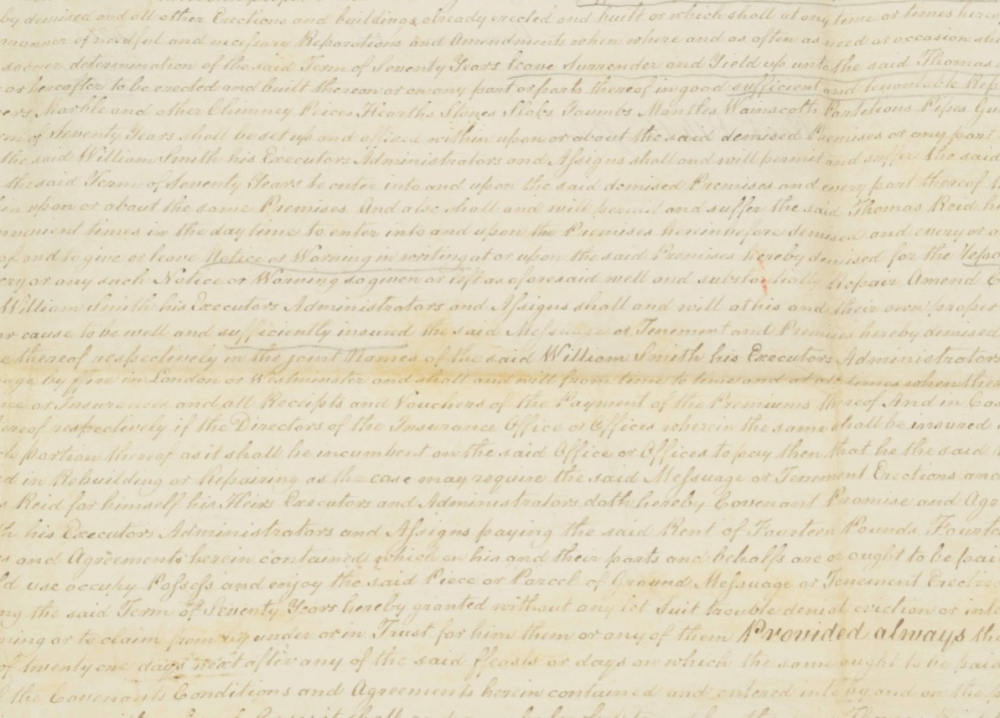 by demised and all other Erections and buildings already erected and built or which shall at any time or times here
manner of needful and necessary Reparations and Amendments when where and as often as need or occasion sha
sooner determination of the said Term of Seventy Years leave Surrender and Yield up unto the said Thomas
or hereafter to be erected and built thereon or on any part or parts thereof in good sufficient and tenantable Rep
ers Marble and other Chimney Pieces Hearths Stones Slabs Mantles Wainscotts Partitions Pipes Gu
rm of Seventy Years shall be set up and affixed within upon or about the said demised Premises or any part
the said William Smith his Executors Administrators and Assigns shall and will permit and suffer the said
the said Term of Seventy Years to enter into and upon the said demised Premises and every part thereof
upon or about the same Premises And also shall and will permit and suffer the said Thomas Reid h
nvenient times in the day time to enter into and upon the Premises hereinbefore demised and every or a
of and to give or leave Notice or Warning in writing at or upon the said Premises hereby demised for the Repa
ery or any such Notice or Warning so given or left as aforesaid well and substantially Repair Amend
William Smith his Executors Administrators and Assigns shall and will at his and their own proper
or cause to be well and sufficiently insured the said Messuage or Tenement and Premises hereby demised
e thereof respectively in the joint Names of the said William Smith his Executors Administrators
age by fire in London or Westminster and shall and will from time to time and at all times when there
ce or Insurances and all Receipts and Vouchers of the Payment of the Premiums thereof And in Cas
ereof respectively if the Directors of the Insurance Office or Offices wherein the same shall be insured
ch portion thereof as it shall be incumbent on the said Office or Offices to pay then that he the said
d in Rebuilding or Repairing as the case may require the said Messuage or Tenement Erections and
s Reid for himself his Heirs Executors and Administrators doth hereby Covenant Promise and Agr
h his Executors Administrators and Assigns paying the said Rent of Fourteen Pounds Fourte
s and Agreements herein contained which on his and their parts and behalfs are or ought to be pai
ld use occupy Possess and enjoy the said Piece or Parcel of Ground Messuage or Tenement Erecti
ng the said Term of Seventy Years hereby granted without any let Suit trouble denial eviction or int
ming or to claim from by under or in Trust for him them or any of them Provided always th
of twenty one days next after any of the said ffeasts or days on which the same ought to be paid
f the Covenants Conditions and Agreements herein contained and entered into by and on the p